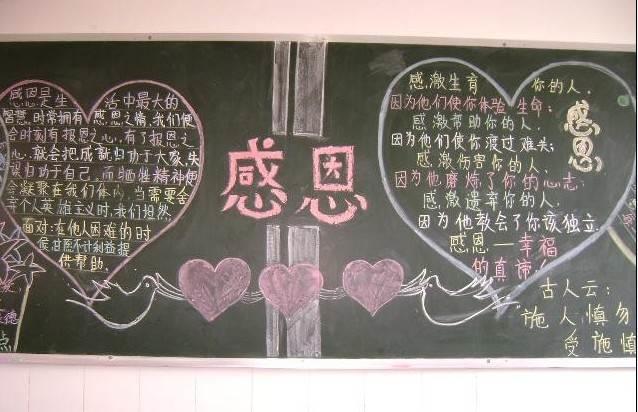 感恩是生活中最大的
智慧,时常拥有感恩之情,我们便
会时刻有报恩之心,有了报恩之
心,就会把成就归功于大家,失
误归功于自己,而牺牲精神便
会凝聚在我们体内,当需要舍
弃个人英雄主义时,我们坦然
面对:在他人困难的时
侯,甘愿不计利益提
供帮助.
感恩
感激生育你的人.
因为他们使你体验生命;
感激帮助你的人.
因为他们使你渡过难关;
感激伤害你的人.
因为他磨炼了你的心志;
感激遗弃你的人.
因为他教会了你该独立.
感恩—幸福
的真谛!
感恩
古人云:
施人慎勿
受施慎
德
点